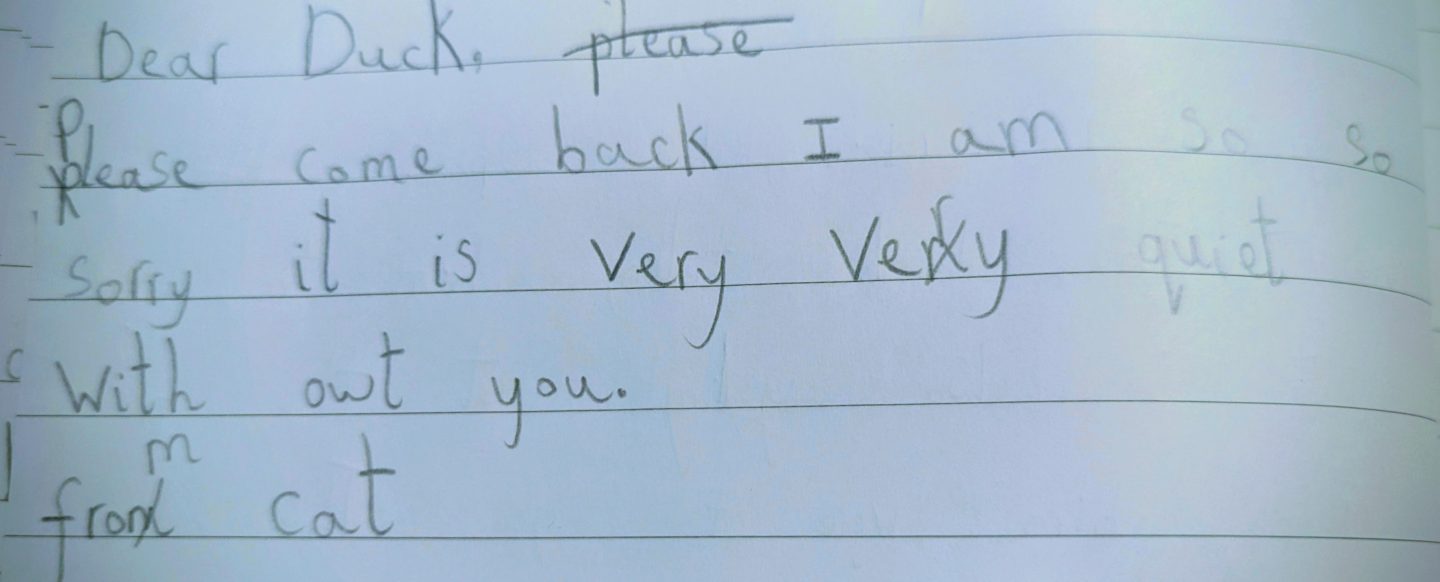 Dear Duck, please
Please come back I am so so
sorry it is very very quiet
with owt you.
from cat